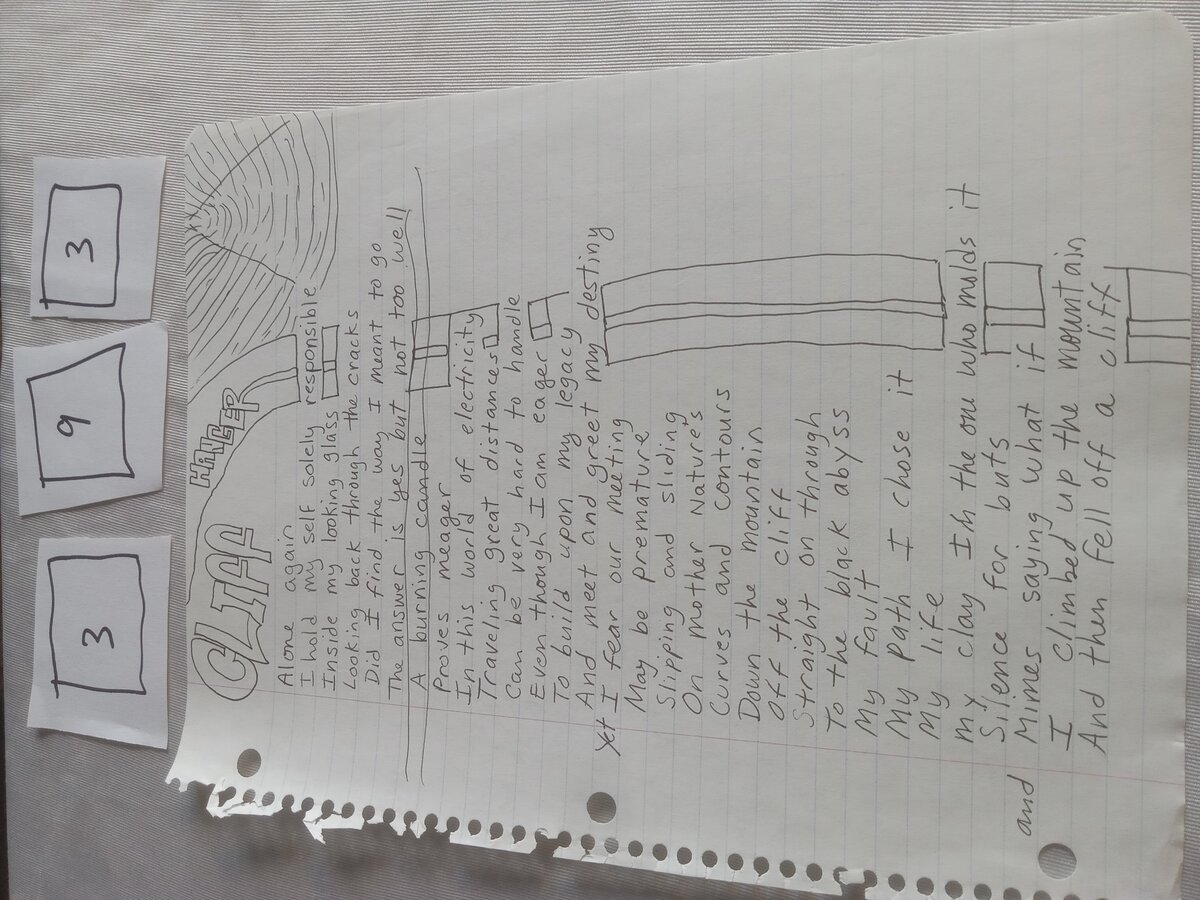 3 9 3
CLIFF HANGER
Alone again
I hold my self solely responsible
Inside my looking glass
Looking back through the cracks
Did I find the way I meant to go
The answer is yes but not too well
A burning candle
Proves meager
In this world of electricity
Traveling great distances
Can be very hard to handle
Even though I am eager
To build upon my legacy
And meet and greet my destiny
Yet I fear our meeting
May be premature
Slipping and sliding
On mother Nature's
Curves and contours
Down the mountain
Off the cliff
Straight on through
To the black abyss
My fault
My path I chose it
My life
my clay Im the one who molds it
Silence for buts
and Mimes saying what if
I climbed up the mountain
And then fell off a cliff